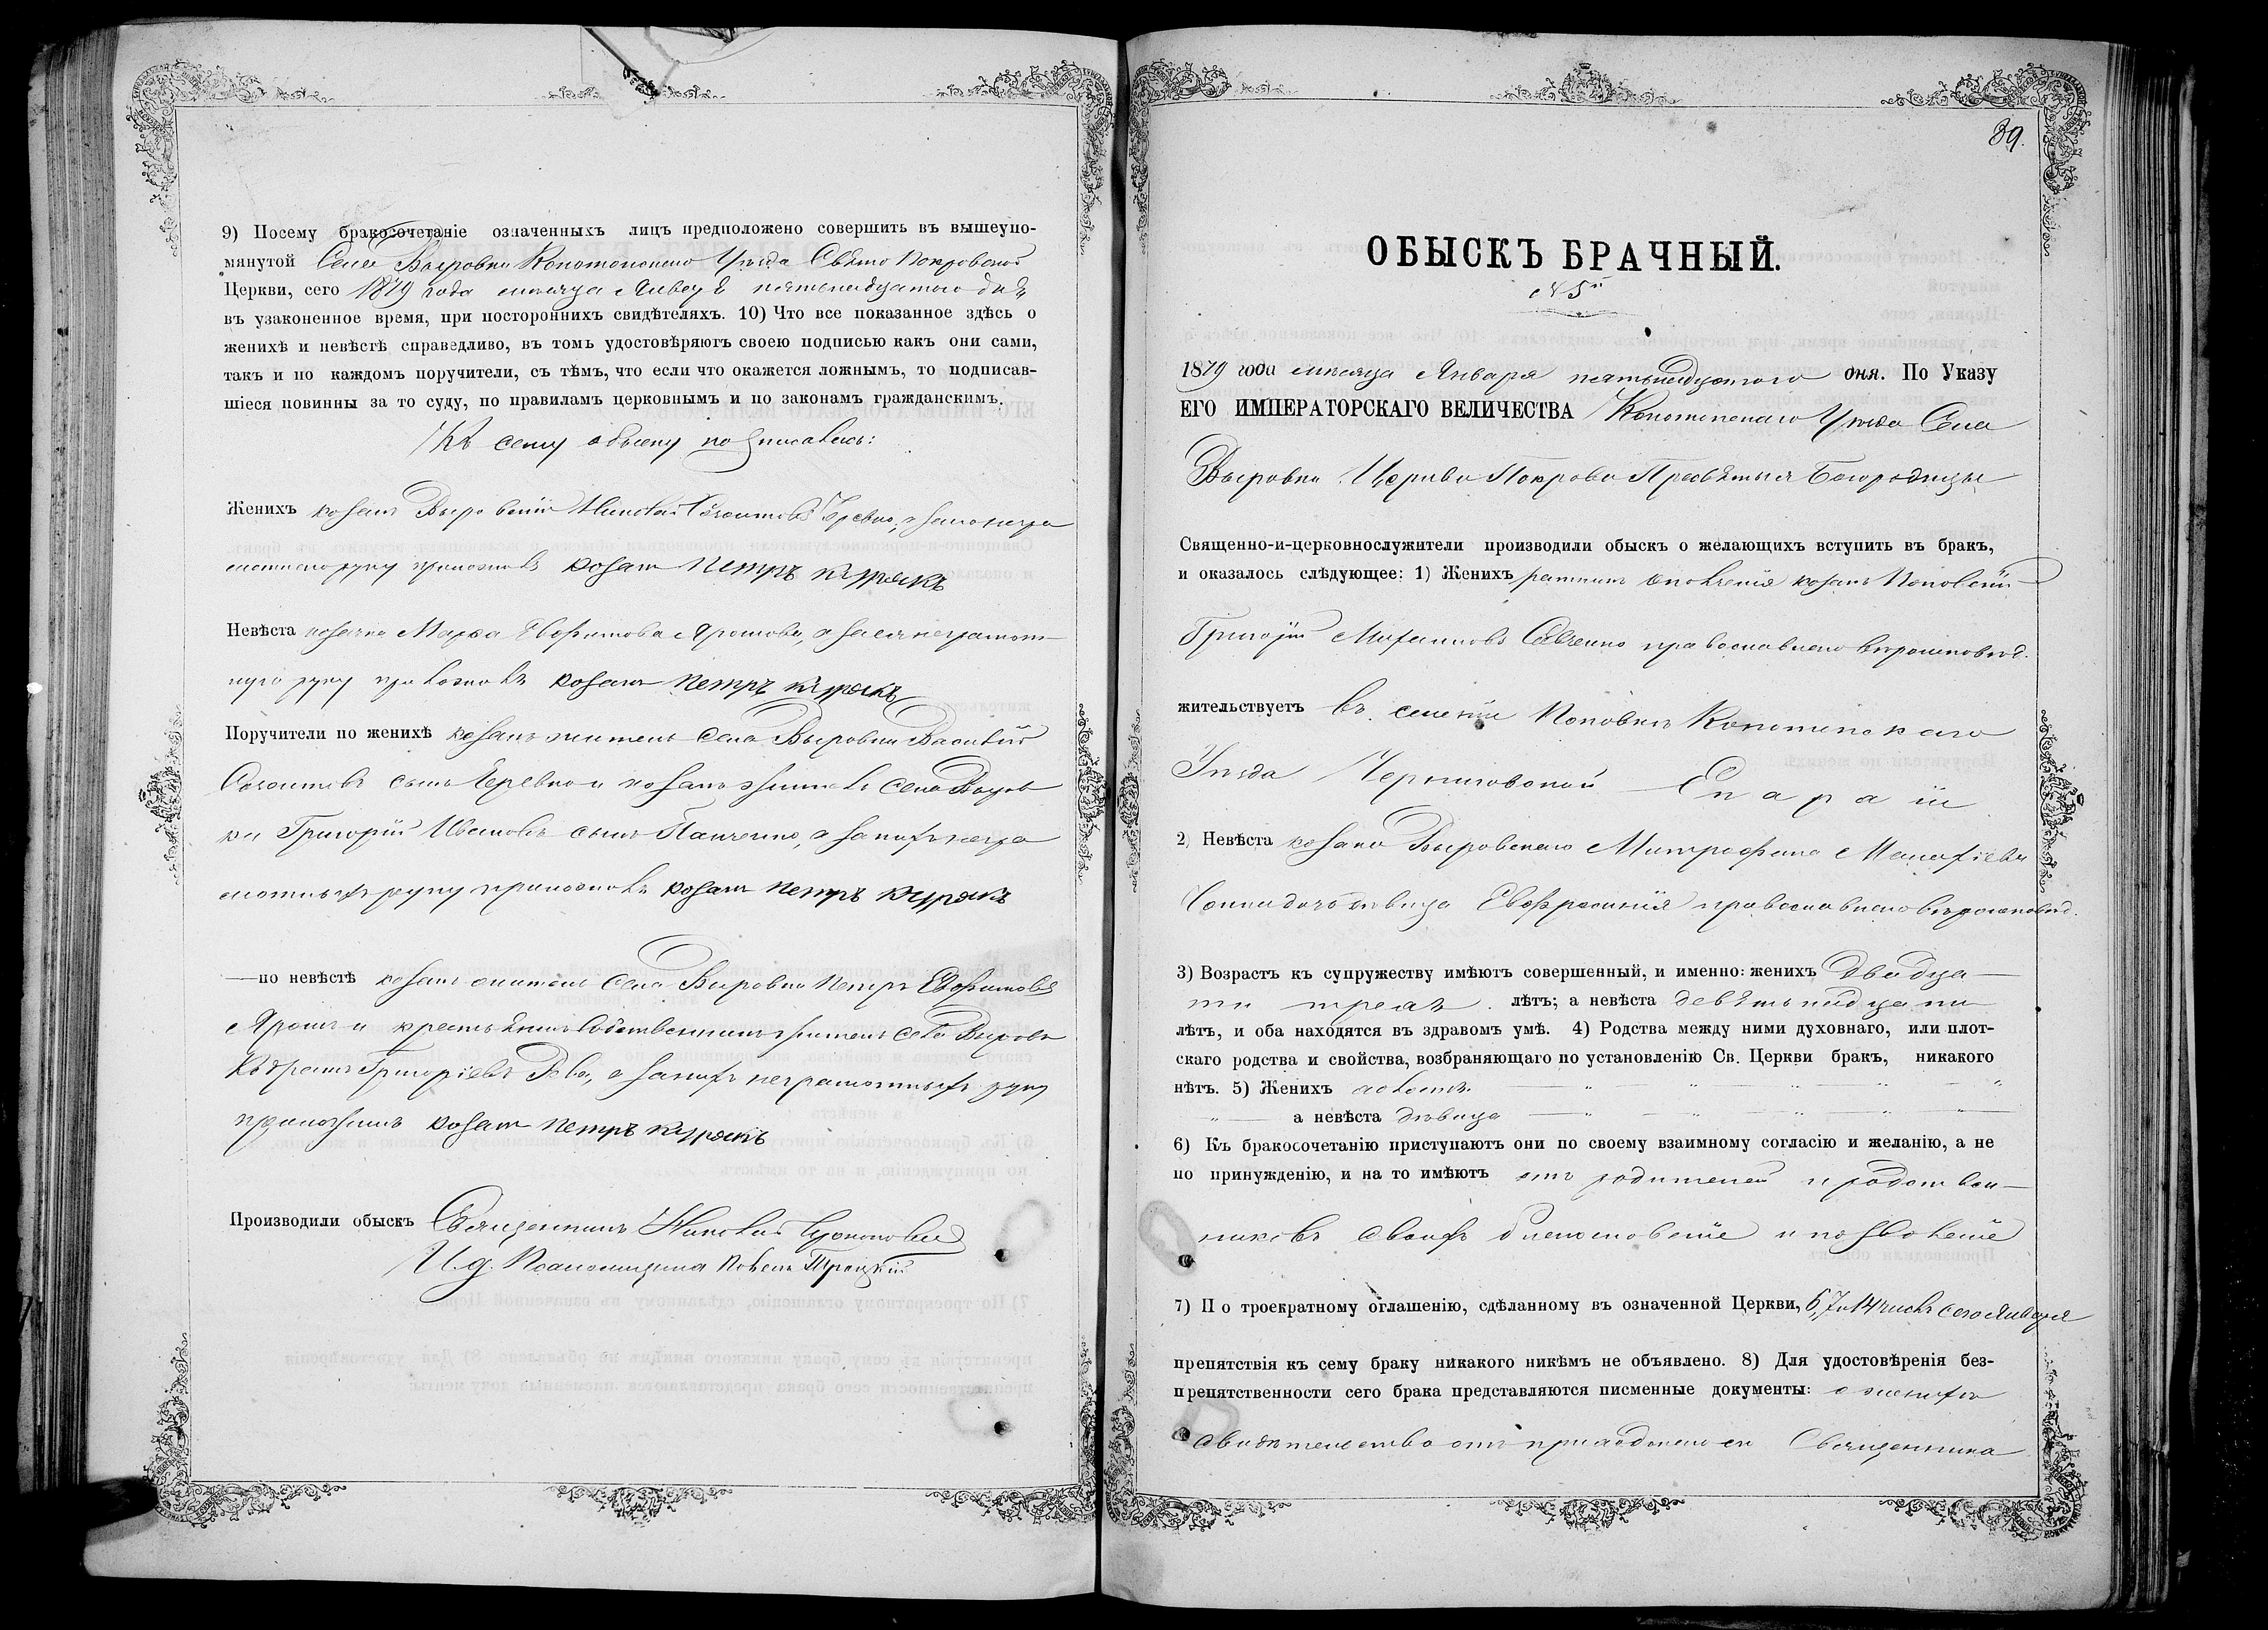 9) Посему бракосочетаніе означенныхъ лицъ предположено совершить въ вышеупо-
мянутой Села Выровки Конотопскаго Уѣзда Свято Покровской
Церкви, сего 1879 года мѣсяца Января пятьнадцатого дня
въ узаконенное время, при постороннихъ свидѣтеляхъ. 10) Что все показанное здѣсь о
женихѣ и невѣстѣ справедливо, въ томъ удостовѣряютъ своею подписью какъ они сами,
такъ и по каждомъ поручители, съ тѣмъ, что если что окажется ложнымъ, то подписав-
шіеся повинны за то суду, по правиламъ церковнымъ и по законамъ гражданскимъ.
Къ сему обыску подписались:
Женихъ козакъ Выровскій Николай Яревко, а за неграмотнаго
руку приложилъ козакъ Петръ Курякъ
Невѣста козачка Марѳа Евфимова Ярошова, а за ея неграмот-
ную руку приложилъ козакъ Петръ Курякъ
Поручители по женихѣ козакъ житель Села Выровки Василій
сынъ Яревко и козакъ житель Села Выров-
ки Григорій Ивановъ сынъ Панченко, а за нихъ негра-
мотныхъ руку приложилъ козакъ Петръ Курякъ
—по невѣстѣ козакъ житель Села Выровки Петръ Евфимовъ
Ярошъ и крестьянинъ собственникъ житель Села Выровки
Кодратъ Григоріевъ Рева, а за нихъ неграмотныхъ руку
приложилъ козакъ Петръ Курякъ
Производили обыскъ Священникъ Николай
И. д. Псаломщика Троцкій
39.
ОБЫСКЪ БРАЧНЫЙ.
№ 5й
1879 года мѣсяца Января пятьнадцатого дня. По Указу
ЕГО ИМПЕРАТОРСКАГО ВЕЛИЧЕСТВА Конотопскаго Уѣзда Села
Выровки Церкви Покрова Пресвятыя Богородицы
Священно-и-церковнослужители производили обыскъ о желающихъ вступить въ бракъ,
и оказалось слѣдующее: 1) Женихъ ратникъ ополченія козакъ Поповскій
Григорій Михаиловъ Савченко православнаго вѣроисповѣд.
жительствуетъ въ селеніи Поповкѣ Конотопскаго
Уѣзда Черниговской Епархіи
2, Невѣста козака Выровскаго Митрофана Малахіева
дочь дѣвица Евфросинія православнаго вѣроисповѣд.
3) Возрастъ къ супружеству имѣютъ совершенный, и именно: женихъ двадца-
ти трехъ лѣтъ; а невѣста девятьнадцати
лѣтъ, и оба находятся въ здравомъ умѣ. 4) Родства между ними духовнаго, или плот-
скаго родства и свойства, возбраняющаго по установленію Св. Церкви бракъ, никакого
нѣтъ. 5) Женихъ холостъ
а невѣста дѣвица
6) Къ бракосочетанію приступаютъ они по своему взаимному согласію и желанію, а не
по принужденію, и на то имѣютъ отъ родителей и родствен-
никовъ своихъ благословеніе и позволеніе
7) По троекратному оглашенію, сдѣланному въ означенной Церкви, 6, 7 и 14 числъ сего Января
препятствія къ сему браку никакого никѣмъ не объявлено. 8) Для удостовѣренія без-
препятственности сего брака представляются писменные документы: о женихѣ
свидѣтельство отъ приходскаго его Священника